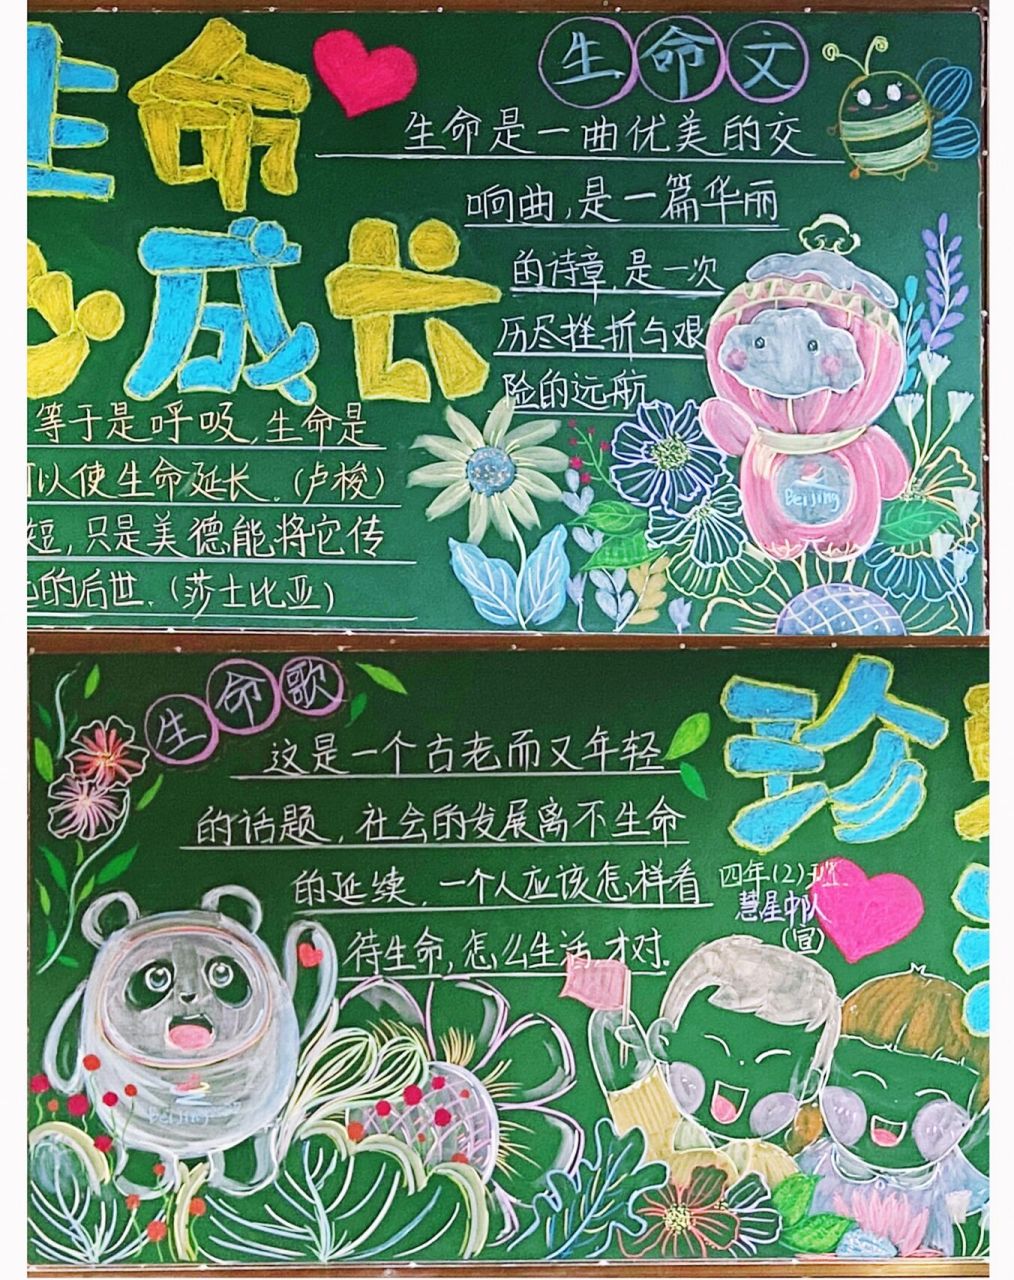 生命
成长
等于是呼吸,生命是
以使生命延长.(卢梭)
短,只是美德能将它传
的后世.(莎士比亚)
生命文
生命是一曲优美的交
响曲,是一篇华丽
的诗章,是一次
历尽挫折与艰
险的远航
Beijing
生命歌
这是一个古老而又年轻
的话题,社会的发展离不生命
的延续,一个人应该怎样看
待生命,怎么生活才对.
Beijing
珍
四年(2)班
慧星中队
(宣)